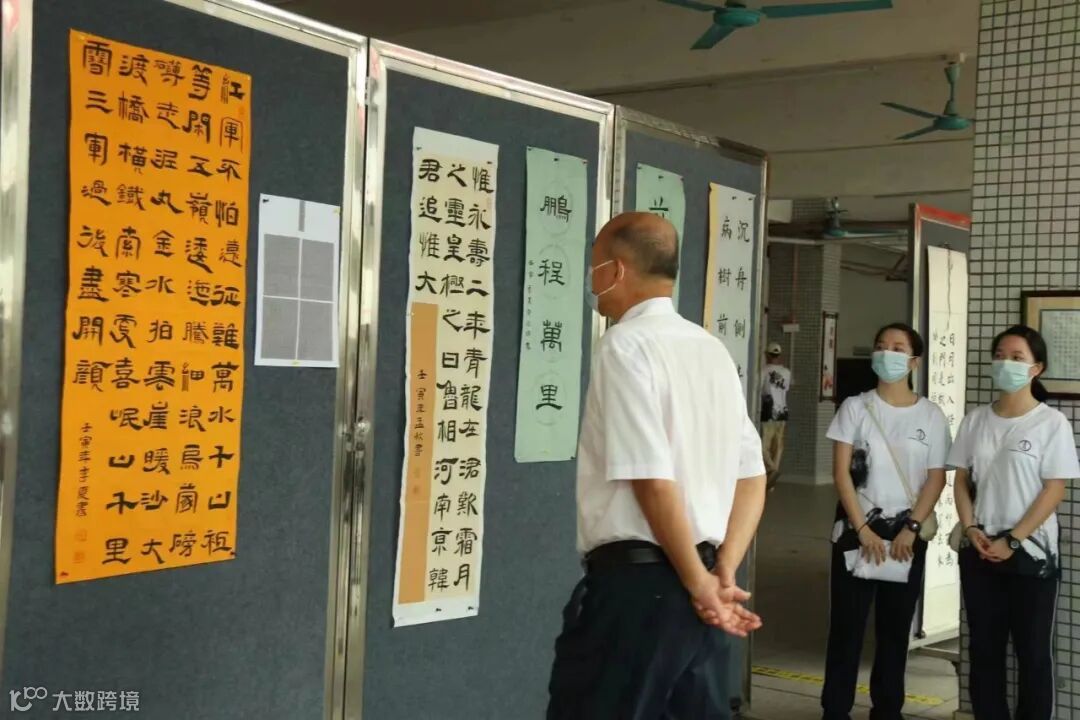 紅軍不怕遠征難萬水千山祗
等閑五嶺逶迤騰細浪烏蒙磅
礴走泥丸金水拍雲崖暖沙大
渡橋橫鐵索寒更喜岷山千里
雪三軍過後盡開顏
壬寅年季夏書
惟永壽二年青龍在涒歎霜月
之靈皇極之日魯相河南京韓
君追惟大
壬寅年孟秋書
鵬程萬里
沉舟側
病樹前
大数跨境